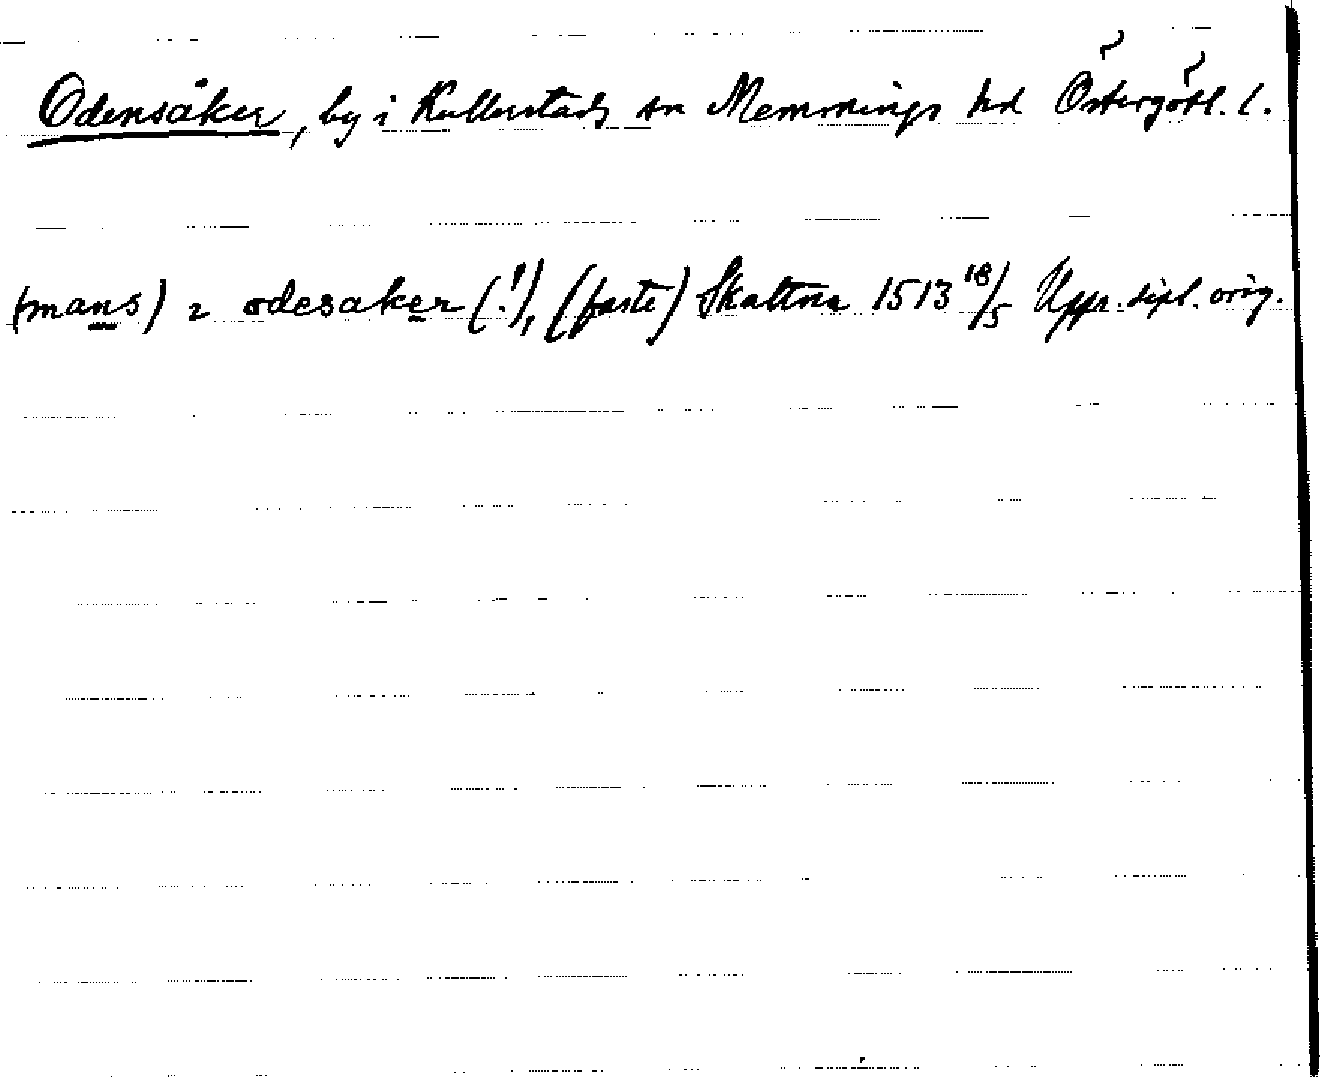 Odensåker, by i Kullerstads sn Memmings hd Östergötl. l.
(mans) i odesaker (!), (faste) Skattna 1513 18/5 Uppr. dipl. orig.